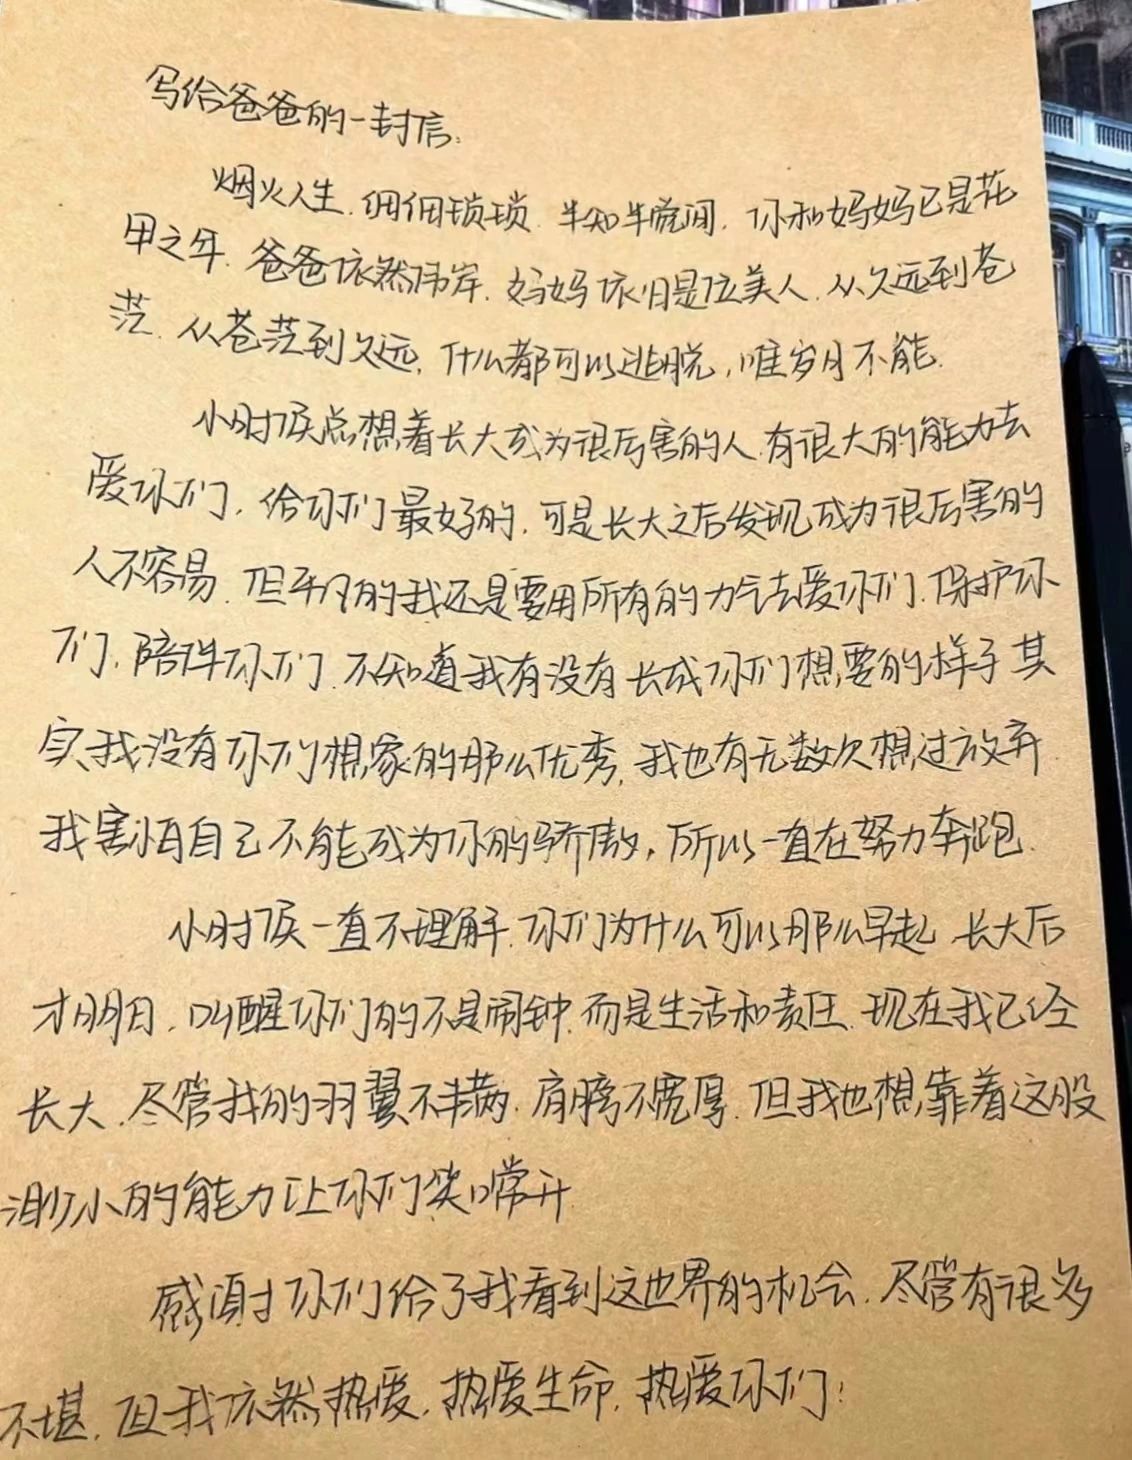 写给爸爸的一封信:
烟火人生.佣佣琐琐.半知半晓间.你和妈妈已是花
甲之年.爸爸依然伟岸.妈妈依旧是位美人.从久远到苍
茫.从苍茫到久远.什么都可以逃脱,唯岁月不能.
小时候总想着长大成为很厉害的人.有很大的能力去
爱你们,给你们最好的.可是长大之后发现成为很厉害的
人不容易.但平凡的我还是要用所有的力气去爱你们.保护你
们.陪伴你们.不知道我有没有长成你们想要的样子其
实我没有你们想象的那么优秀.我也有无数次想过放弃.
我害怕自己不能成为你的骄傲,所以一直在努力奔跑.
小时候一直不理解.你们为什么可以那么早起.长大后
才明白.叫醒你们的不是闹钟.而是生活和责任.现在我已经
长大.尽管我的羽翼不丰满.肩膀不宽厚.但我也想靠着这股
渺小的能力让你们笑口常开
感谢你们给了我看到这世界的机会.尽管有很多
不堪.但我依然热爱.热爱生命.热爱你们!